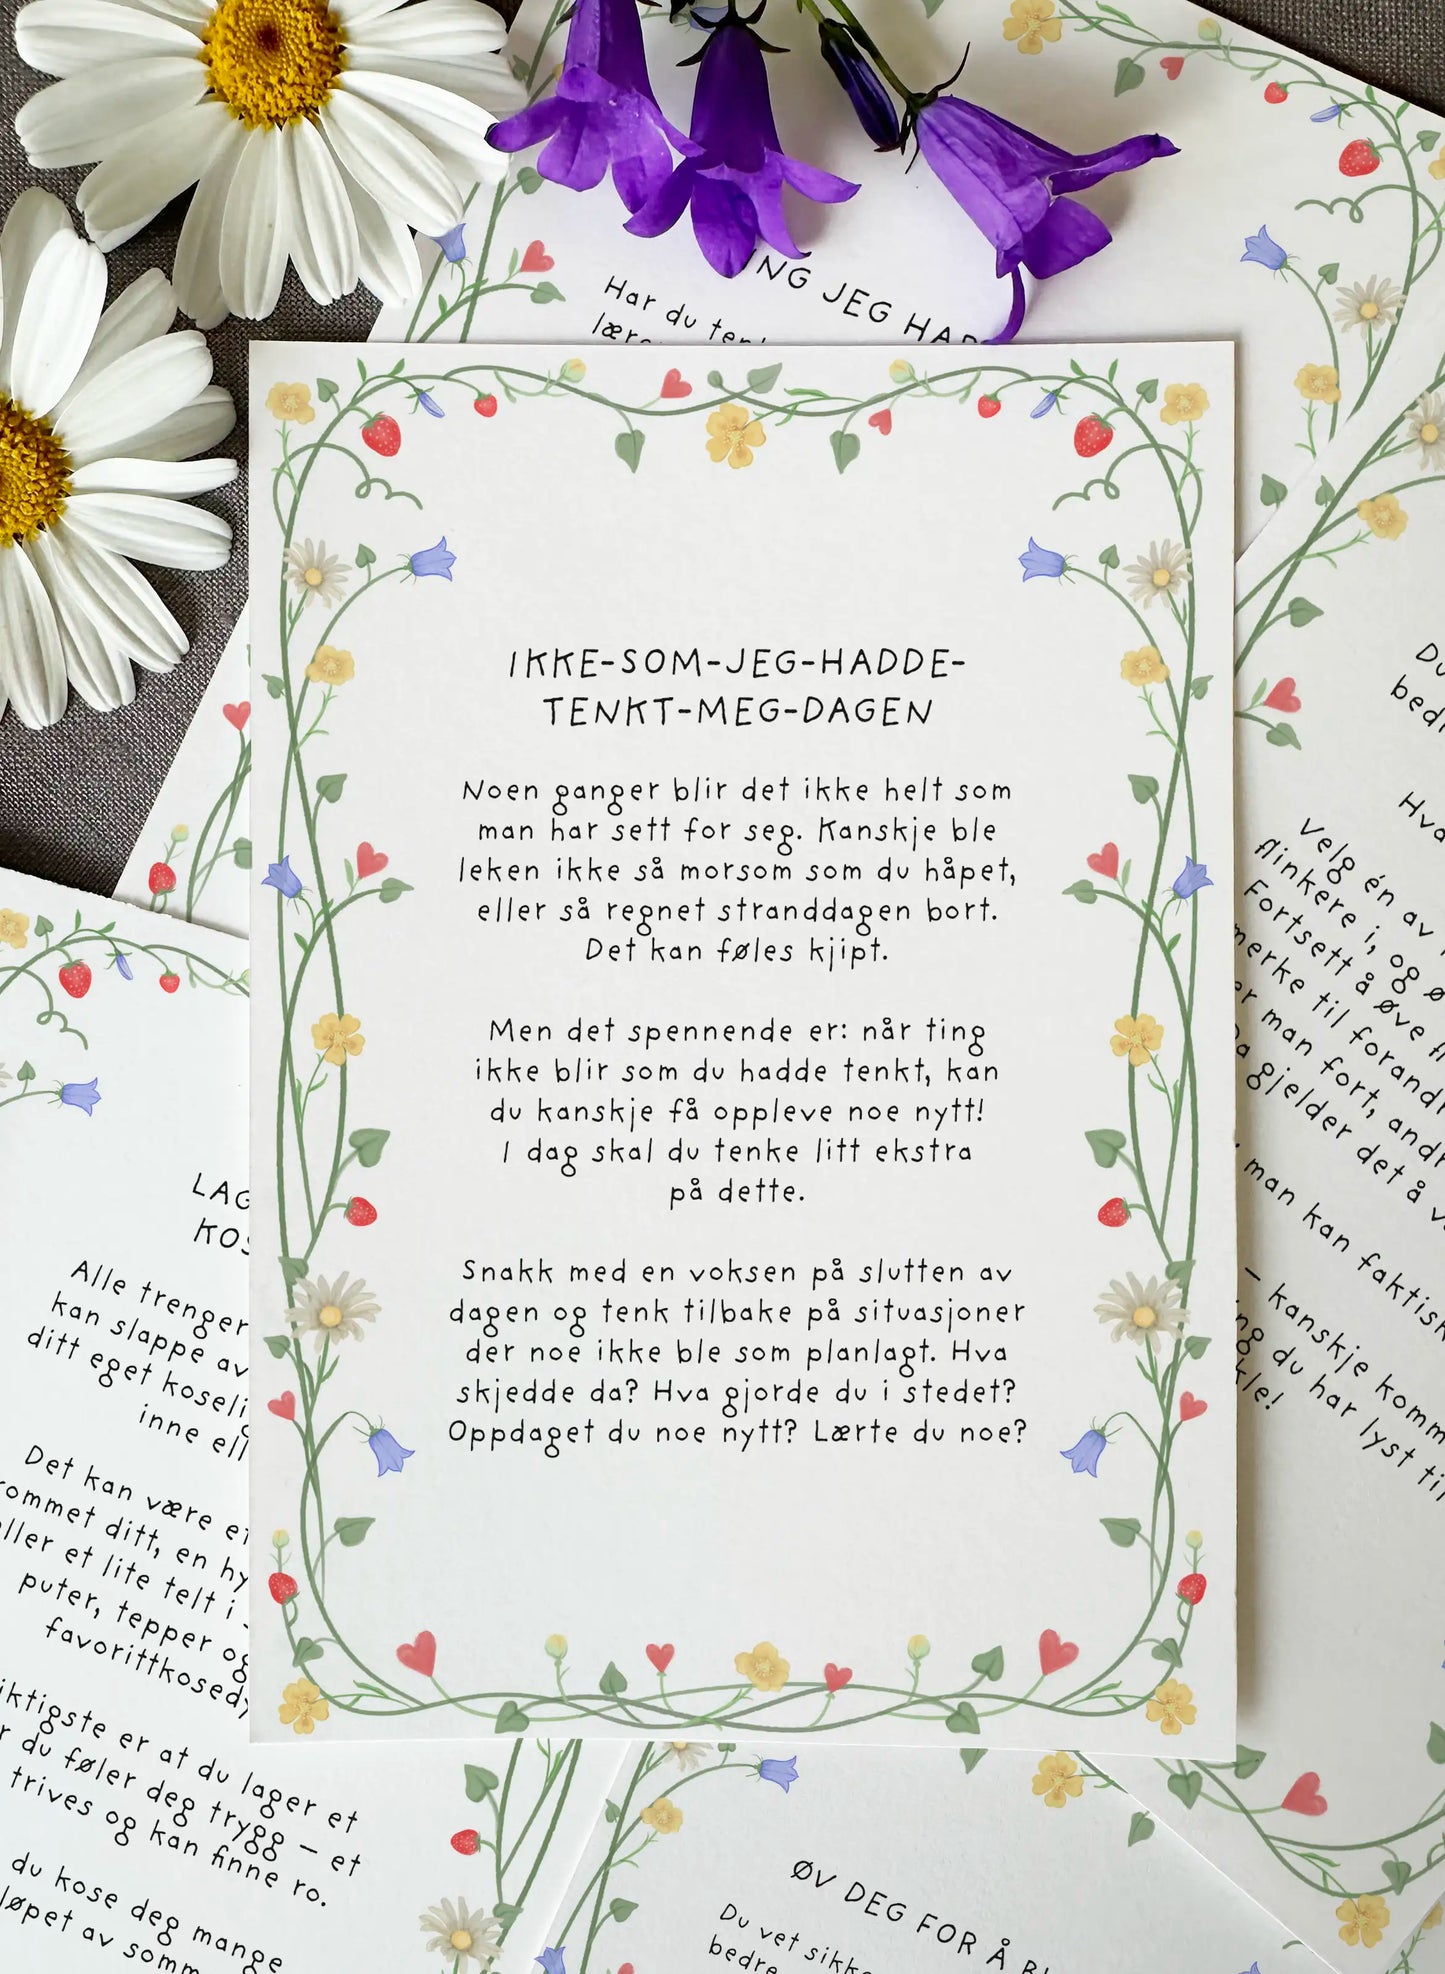 NG JEG HAD
Har du
IKKE-SOM-JEG-HADDE-
TENKT-MEG-DAGEN
Noen ganger blir det ikke helt som
man har sett for seg. Kanskje ble
leken ikke så morsom som du håpet,
eller så regnet stranddagen bort.
Det kan føles kjipt.
Men det spennende er: når ting
ikke blir som du hadde tenkt, kan
du kanskje få oppleve noe nytt!
I dag skal du tenke litt ekstra
på dette.
Snakk med en voksen på slutten av
dagen og tenk tilbake på situasjoner
der noe ikke ble som planlagt. Hva
skjedde da? Hva gjorde du i stedet?
Oppdaget du noe nytt? Lærte du noe?
LAG
KOS
Alle trenger
kan slappe av
ditt eget koseli
inne ell
Det kan være et
rommet ditt, en hy
eller et lite telt i
puter, tepper og
favorittkosedy
iktigste er at du lager et
r du føler deg trygg – et
trives og kan finne ro.
du kose deg mange
løpet av somm
Du
bedr
Hva
Velg én av
flinkere i, og ø
Fortsett å øve
merke til forandr
er man fort, andr
Da gjelder det å v
man kan faktisk
– kanskje komm
ing du har lyst til
kle!
ØV DEG FOR Å BL
Du vet sikk
bedre